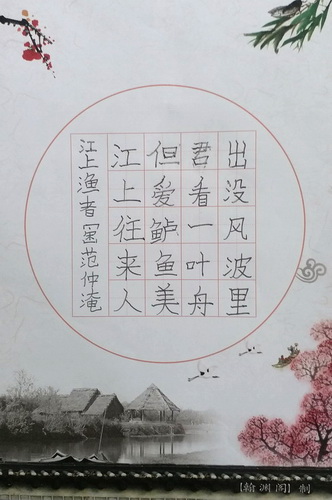 江上渔者 范仲淹
江上往来人
但爱鲈鱼美
君看一叶舟
出没风波里
【翰渊阁】制